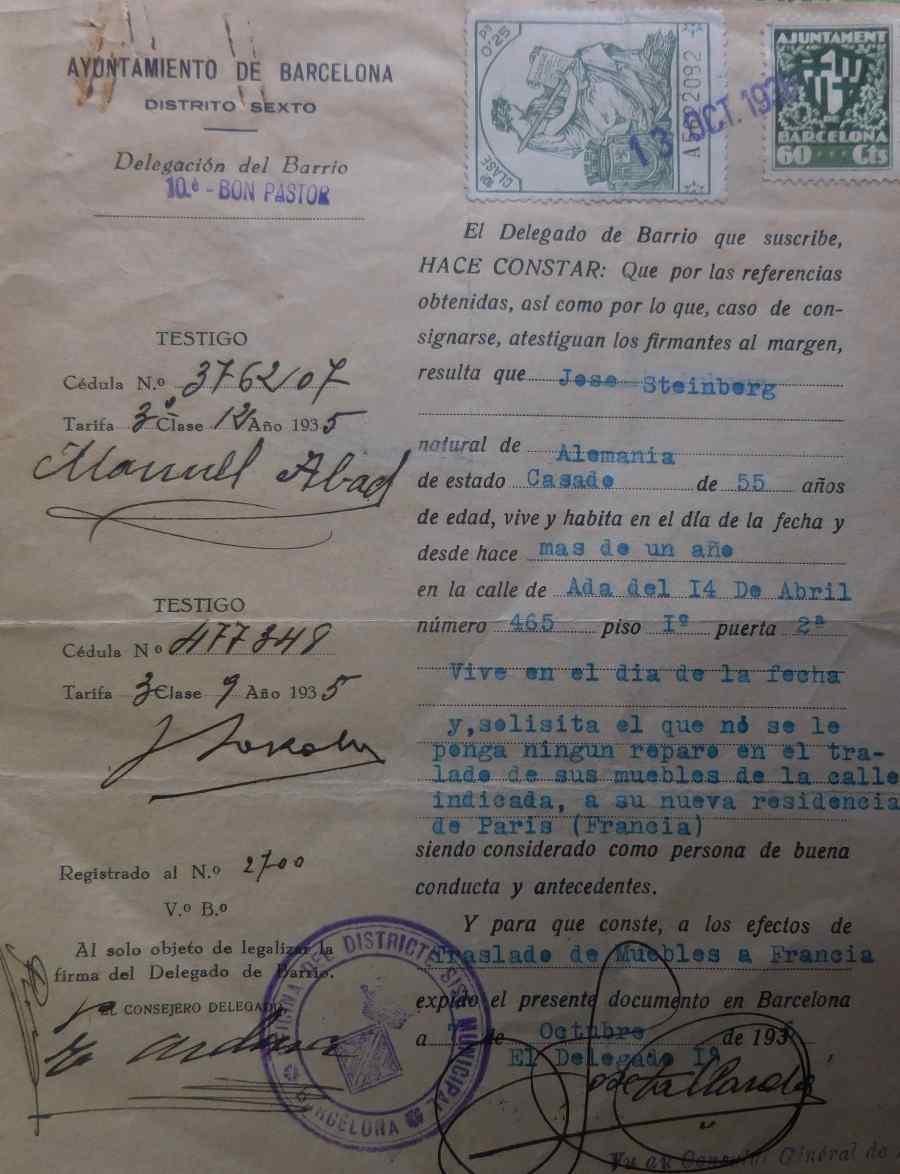 AYUNTAMIENTO DE BARCELONA
DISTRITO SEXTO
Delegación del Barrio
10.º - BON PASTOR
PT 0'25
10ª CLASE
A5592092
AJUNTAMENT
DE
BARCELONA
60 Cts
13 OCT. 193
TESTIGO
Cédula N.º 376207
Tarifa 3ª Clase 12 Año 1935
Manuel Abad
TESTIGO
Cédula Nº 477348
Tarifa 3 Clase 9 Año 1935
Registrado al N.º 2700
V.º B.º
Al solo objeto de legalizar la
firma del Delegado de Barrio.
EL CONSEJERO DELEGADO
DISTRICTE SISÈ MUNICIPAL
BARCELONA
El Delegado de Barrio que suscribe,
HACE CONSTAR: Que por las referencias
obtenidas, así como por lo que, caso de con-
signarse, atestiguan los firmantes al margen,
resulta que Jose Steinberg
natural de Alemania
de estado Casado de 55 años
de edad, vive y habita en el día de la fecha y
desde hace mas de un año
en la calle de Ada del I4 De Abril
número 465 piso Iº puerta 2ª
Vive en el dia de la fecha
y,solisita el que no se le
ponga ningun reparo en el tra-
lado de sus muebles de la calle
indicada, a su nueva residencia
de Paris (Francia)
siendo considerado como persona de buena
conducta y antecedentes.
Y para que conste, a los efectos de
Traslado de Muebles a Francia
expido el presente documento en Barcelona
a 7 de Octubre de 193
El Delegado Iº
General de